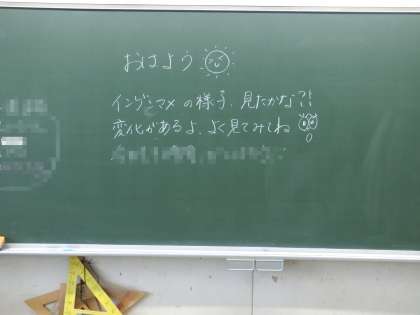 おはよう
インゲンマメの様子、見たかな?!
変化があるよ、よく見てみてね